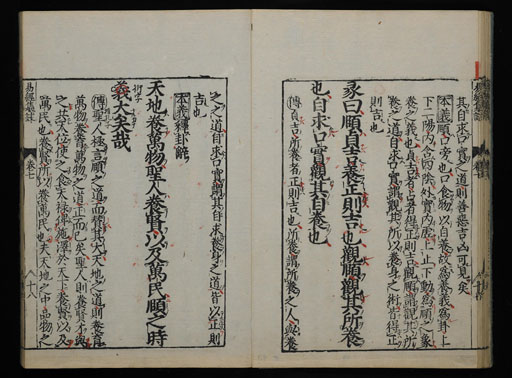 其自求口實之道則善惡吉凶可見矣
本義頤口旁也口食物以自養故為養義為卦上
下二陽内含四陰外實内虛上止下動為頤之象
養之義也貞吉者占者得正則吉觀頤謂觀其所
養之道自求口實謂觀其所以養身之術皆得正
則吉也
彖曰頤貞吉養正則吉也觀頤觀其所養
也自求口實觀其自養也
傳貞吉所養者正則吉也所養謂所養之人與養
之之道自求口實謂其自求養身之道皆以正則
吉也
本義釋卦辭
天地養萬物聖人養賢以及萬民頤之時
義大矣哉
傳聖人極言頤之道而贊其大天地之道則養育
萬物養育萬物之道正而已矣聖人則養賢才與
之共天位使之食天祿俾施澤於天下養賢以及
萬民也養賢所以養萬民也夫天地之中品物之
十八